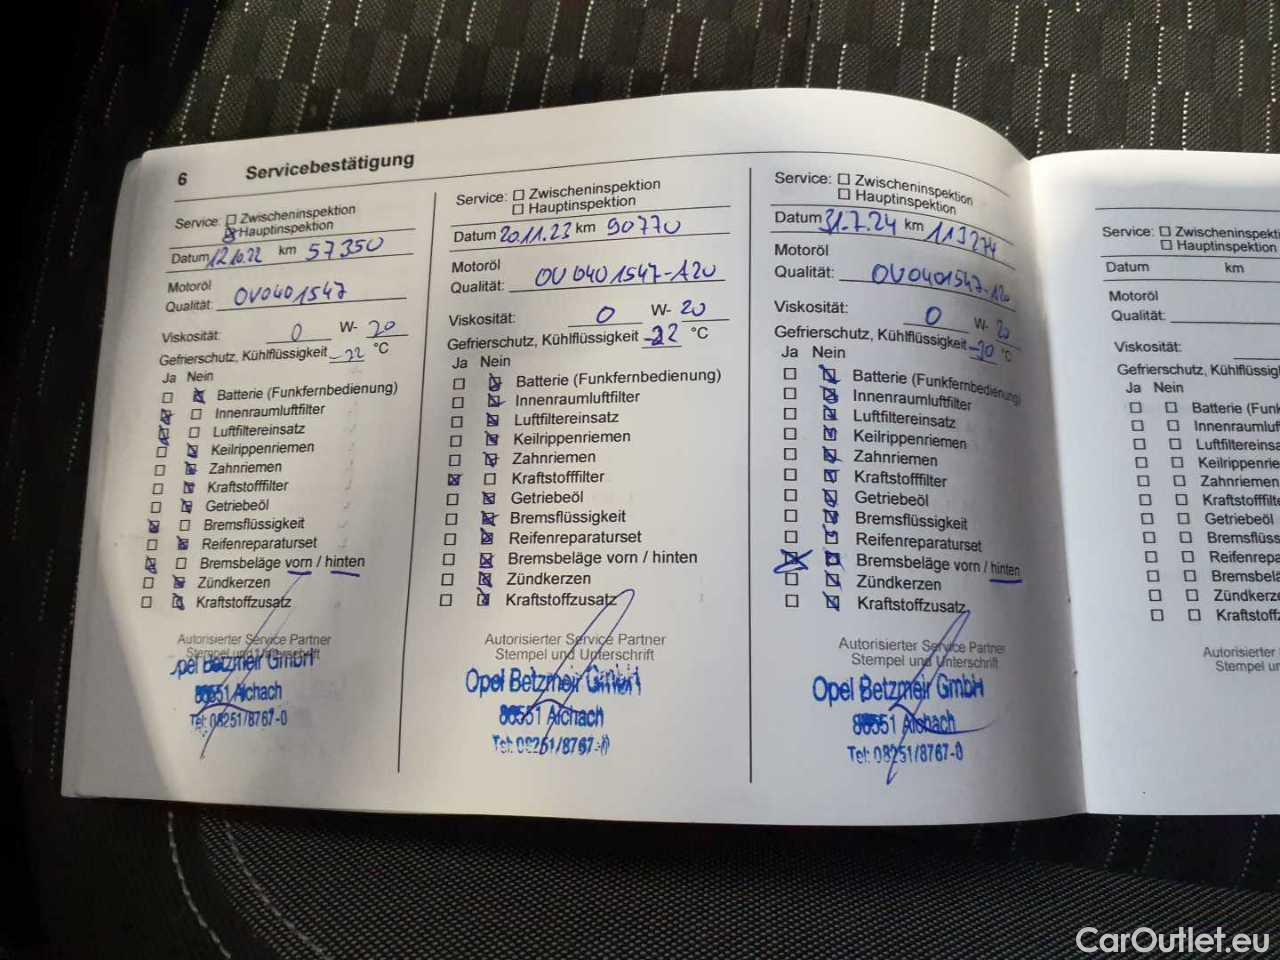 6 Servicebestätigung
Service: Zwischeninspektion
Hauptinspektion
Datum 12.10.22 km 57350
Motoröl
Qualität: OV0401547
Viskosität: 0 W- 20
Gefrierschutz, Kühlflüssigkeit -22 °C
Ja Nein
Batterie (Funkfernbedienung)
Innenraumluftfilter
Luftfiltereinsatz
Keilrippenriemen
Zahnriemen
Kraftstofffilter
Getriebeöl
Bremsflüssigkeit
Reifenreparaturset
Bremsbeläge vorn / hinten
Zündkerzen
Kraftstoffzusatz
Autorisierter Service Partner
Stempel und Unterschrift
Opel Betzmeir GmbH
86551 Aichach
Tel: 08251/8767-0
Service: Zwischeninspektion
Hauptinspektion
Datum 20.11.23 km 90770
Motoröl
Qualität: OV0401547-A20
Viskosität: 0 W- 20
Gefrierschutz, Kühlflüssigkeit -22 °C
Ja Nein
Batterie (Funkfernbedienung)
Innenraumluftfilter
Luftfiltereinsatz
Keilrippenriemen
Zahnriemen
Kraftstofffilter
Getriebeöl
Bremsflüssigkeit
Reifenreparaturset
Bremsbeläge vorn / hinten
Zündkerzen
Kraftstoffzusatz
Autorisierter Service Partner
Stempel und Unterschrift
Opel Betzmeir GmbH
86551 Aichach
Tel: 08251/8767-0
Service: Zwischeninspektion
Hauptinspektion
Datum 31.7.24 km 113274
Motoröl
Qualität: OV0401547-A20
Viskosität: 0 W- 20
Gefrierschutz, Kühlflüssigkeit °C
Ja Nein
Batterie (Funkfernbedienung)
Innenraumluftfilter
Luftfiltereinsatz
Keilrippenriemen
Zahnriemen
Kraftstofffilter
Getriebeöl
Bremsflüssigkeit
Reifenreparaturset
Bremsbeläge vorn / hinten
Zündkerzen
Kraftstoffzusatz
Autorisierter Service Partner
Stempel und Unterschrift
Opel Betzmeir GmbH
86551 Aichach
Tel: 08251/8767-0
Service: Zwischeninspekti
Hauptinspektion
Datum km
Motoröl
Qualität:
Viskosität:
Gefrierschutz, Kühlflüssig
Ja Nein
Batterie (Funk
Innenraumluft
Luftfiltereinsa
Keilrippenrie
Zahnriemen
Kraftstofffilte
Getriebeöl
Bremsflüss
Reifenrepa
Bremsbelä
Zündkerze
Kraftstoffz
Autorisierter
Stempel un
CarOutlet.eu